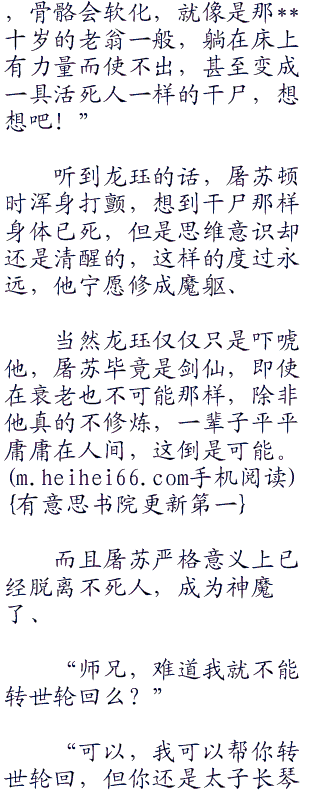 ，骨骼会软化，就像是那**
十岁的老翁一般，躺在床上
有力量而使不出，甚至变成
一具活死人一样的干尸，想
想吧！”
听到龙珏的话，屠苏顿
时浑身打颤，想到干尸那样
身体已死，但是思维意识却
还是清醒的，这样的度过永
远，他宁愿修成魔躯、
当然龙珏仅仅只是吓唬
他，屠苏毕竟是剑仙，即使
在衰老也不可能那样，除非
他真的不修炼，一辈子平平
庸庸在人间，这倒是可能。
(m.heihei66.com手机阅读)
{有意思书院更新第一}
而且屠苏严格意义上已
经脱离不死人，成为神魔
了、
“师兄，难道我就不能
转世轮回么？”
“可以，我可以帮你转
世轮回，但你还是太子长琴